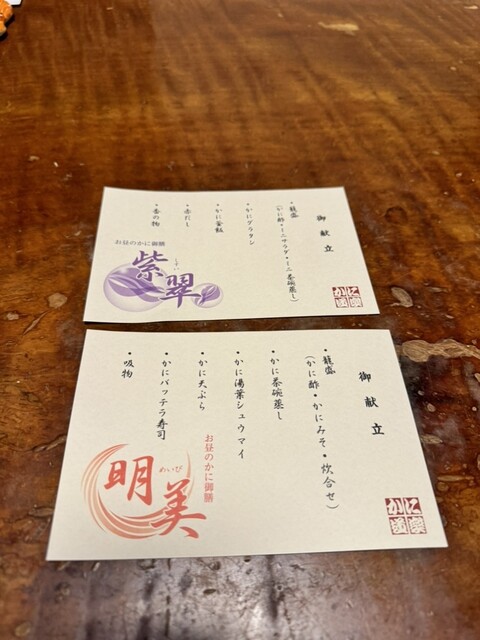 御献立
・籠盛
(かに酢・ミニサラダ・ミニ茶碗蒸し)
・かにグラタン
・かに釜飯
・赤だし
・香の物
お昼のかに御膳
紫翠
しすい
かに道楽
御献立
・籠盛
(かに酢・かにみそ・炊合せ)
・かに茶碗蒸し
・かに湯葉シュウマイ
・かに天ぷら
・かにバッテラ寿司
・吸物
お昼のかに御膳
明美
めいび
かに道楽